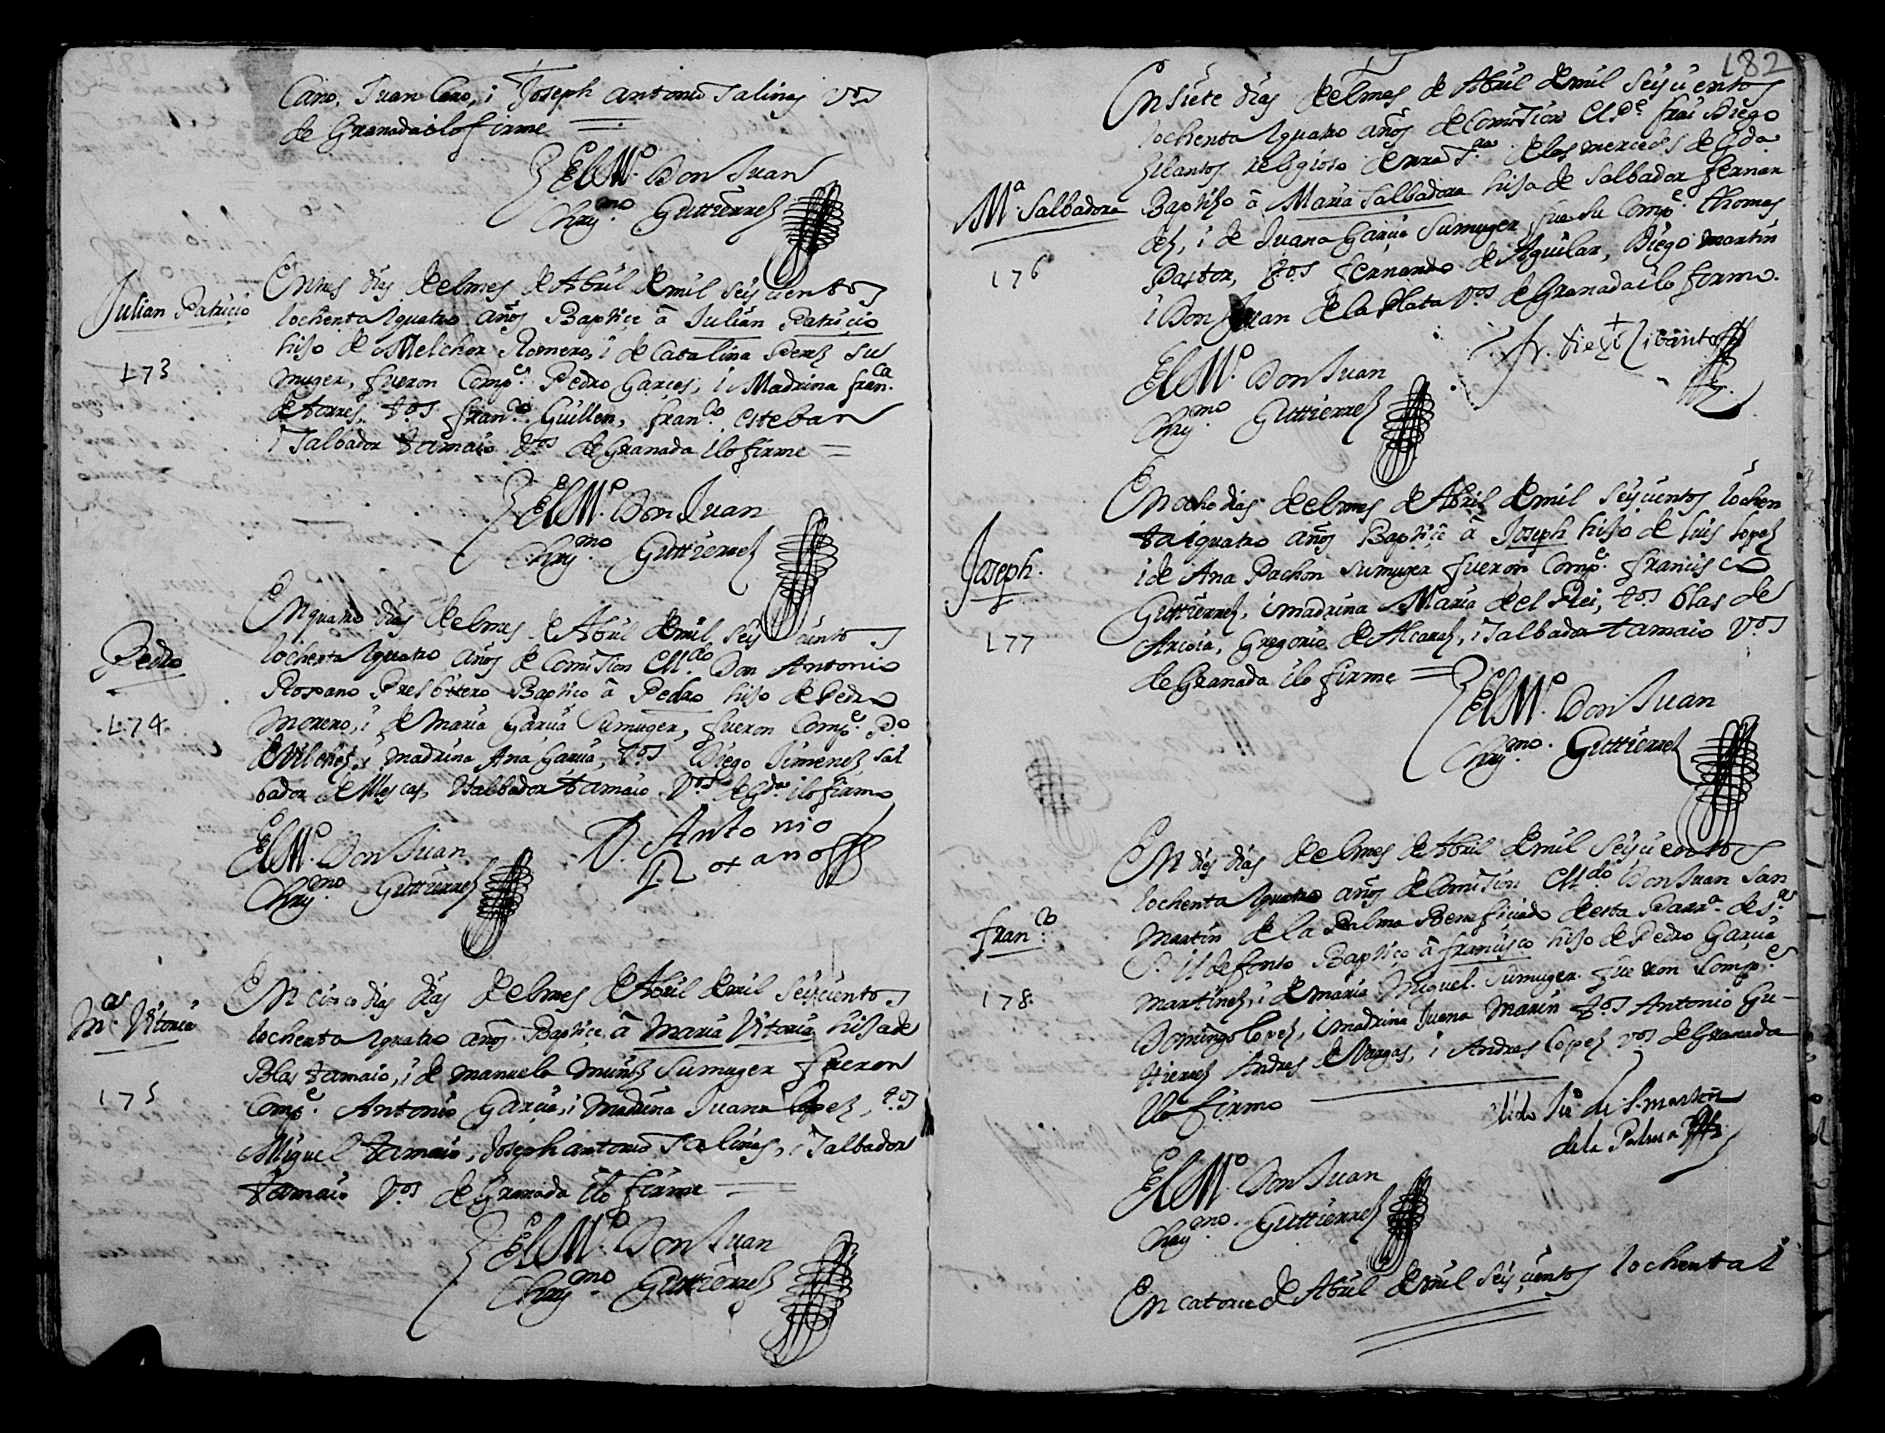 Cano, Juan Cano, i Joseph antonio Salinas Vos
de Granada i lo firme
El Mo. Don Juan
Chrymo. Guttierrez
Julian Patricio
173
En tres dias de el mes de Abril de mil seiscientos
i ochenta i quatro años Baptiçe â Julian Patricio
hijo de Melchor Romero, i de Catalina Perez su
muger, fueron Compes. Pedro Garces, i Madrina franca.
de torres, tos. Franco. Guillen, franco. esteban
i Salbador tamaio Vos de Granada i lo firme
El Mo. Don Juan
Chrymo Guttierrez
Pedro
174
En quatro dias de el mes de Abril de mil seiscientos
i ochenta i quatro años de Comission el Ldo Don Antonio
Rossano Presbitero Baptiço â Pedro hijo de Pedro
Moreno, i de Maria Garcia su muger, fueron Compe. Po
Vilchez, i madrina Ana Garcia, tos Diego Jimenez Sal
bador de Illescas, i Salbador tamaio Vos de Gda i lo firmo
El Mo. Don Juan
Chrymo. Guttierrez
D. Antonio
Rosano
Ma Vitoria
175
En cinco dias dias de el mes de Abril de mil seiscientos
i ochenta i quatro años Baptiçe â Maria Vitoria hija de
Blas tamaio, i de manuela muñoz su muger fueron
Compe. Antonio Garcia, i Madrina Juana Lopez, tos
Miguel tamaio, Joseph antonio Salinas, i Salbador
tamaio Vos. de Granada i lo firme
El Mo. Don Juan
Chrymo. Guttierrez
182
Ma. Salbadora
176
En siete dias de el mes de Abril de mil seiscientos
i ochenta i quatro años de Comission el Pe. frai Diego
Zicantos religioso de nra Sra de las mercedes de Gda
Baptiço â Maria Salbadora hija de Salbador Fernan
dez, i de Juana Garcia su muger, fue su Compe. thomas
Pastor, tos Fernando de Aguilar, Diego martin
i Don Juan de la Plata Vos de Granada i lo firmo.
fr. diego Zicantos
El Mo. Don Juan
Chrymo. Guttierrez
Joseph.
177
En ocho dias de el mes de Abril de mil seiscientos i ochen
ta i quatro años Baptiçe â Joseph hijo de luis lopez
i de Ana Pachon su muger fueron Compe. francisco
Guttierrez, i madrina Maria del Rei, tos blas de
Arcoia, Gregorio de Alcaraz, i Salbador tamaio Vos
de Granada i lo firme
El Mo. Don Juan
Chrymo. Guttierrez
Franco.
178.
En dies dias de el mes de Abril de mil seiscientos
i ochenta i quatro años de Comission el Ldo Don Juan San
Martin de la Palma Beneficiado de esta Parra. de Sr
S. Ildefonso Baptiço â francisco hijo de Pedro Garcia
Martinez, i de Maria Miguel su muger fueron Compe.
Domingo lopez, i madrina Juana Marin tos Antonio Gu-
tierrez Andres de Vargas, i Andres lopez vos de Granada
i lo firmo
Ldo Ju de S. martin
de la Palma
El Mo. Don Juan
Chrymo. Guttierrez
En catorce de Abril de mil seiscientos i ochenta i